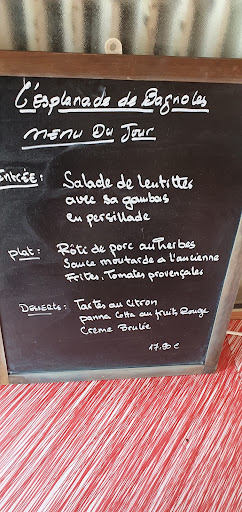 L'Esplanade de Bagnoles
Menu Du Jour
Entrée : Salade de lentilles
avec sa gambas
en persillade
Plat : Rôti de porc aut herbes
Sauce moutarde a l'ancienne
Frites, Tomates provençales
Desserts : Tartes au Citron
panna Cotta au fruits Rouge
Creme Brulée
17,90 €